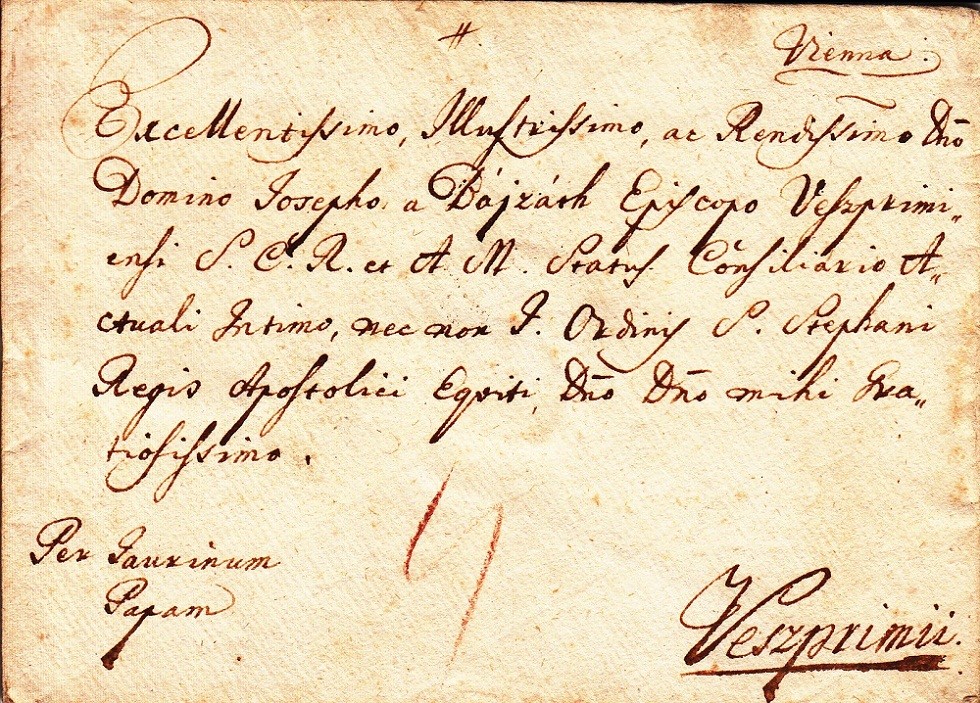 #
Vienna.
Excellentissimo, Illustrissimo, ac Rendissimo Dno
Domino Josepho a Bájzáth Episcopo Veszprimi„
ensi S. C. R. et A M. Status Consiliario A„
ctuali Intimo, nec non I. Ordinis S. Stephani
Regis Apostolici Eqviti, Dno Dno mihi Gra„
tiosissimo.
Per Jaurinum
Papam
Veszprimii.